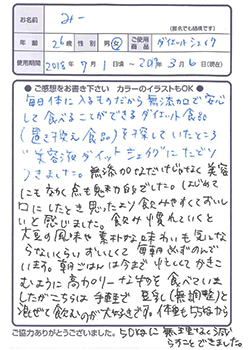 お名前 みー
(匿名でも結構です)
年齢 26歳 性別 男・女 ご使用商品 ダイエットシェイク
使用期間 2018年 9月 1日頃 ～ 2019年 3月 6日(現在)
●ご感想をお書き下さい カラーのイラストもOK●
毎日体に入るものだから無添加で安心
して食べることができるダイエット食品
(置き換え食品)を探していたところ
"美容液ダイエットシェイク"にたどり
つきました。無添加なだけじゃなく美容
にもなく点も魅力的でした。はじめて
口にしたとき思ったより飲みやすくておいし
いと感じました。飲み慣れていくと
大豆の風味や素朴な味わいも気になら
ないくらいおいしくて毎朝必ずのんで
います。朝ごはんは今まで忙しくてかきこ
むように高カロリーなものを食べていま
したがこちらは手軽で豆乳(無調整)と
混ぜて飲むのが大好きです。体重も55kgから
50kgに無理なく減
らすことできました。
ご協力ありがとうございました。